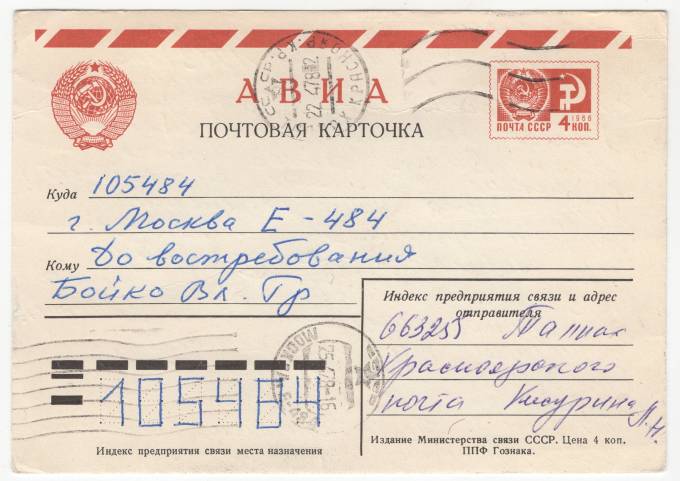 АВИА
ПОЧТОВАЯ КАРТОЧКА
ПОЧТА СССР 4 КОП. 1966
Куда 105484
г. Москва Е-484
Кому До востребования
Бойко Вл. Гр
Индекс предприятия связи и адрес отправителя
663255
Красноярского
почта
Л.Н.
105484
Индекс предприятия связи места назначения
Издание Министерства связи СССР. Цена 4 коп.
ППФ Гознака.
МОСКВА